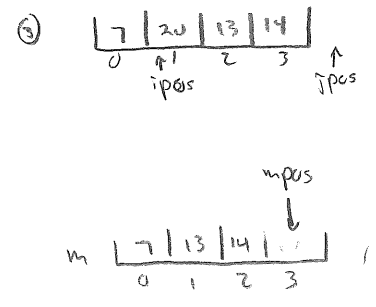 ③ 7 20 13 14
0 1 2 3
ipos jpos
mpos
m 7 13 14
0 1 2 3